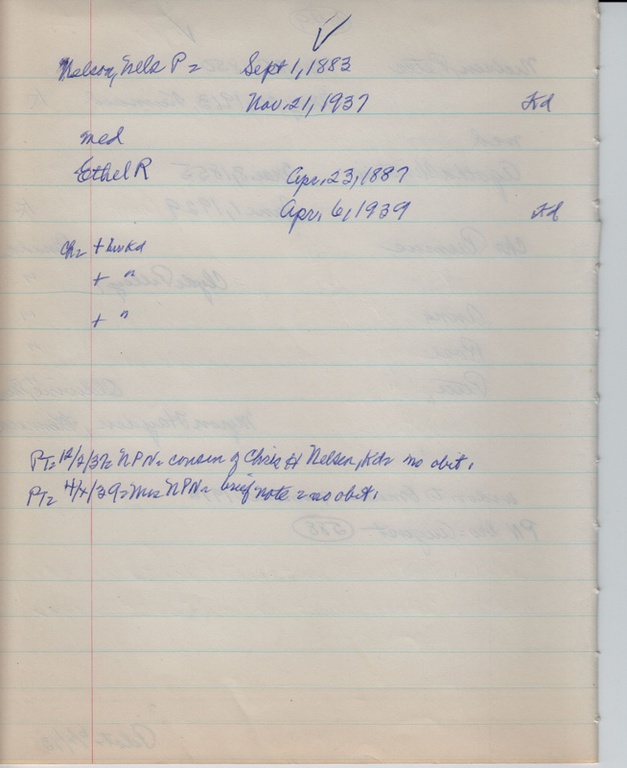 Nelson, Nels P = Sept 1, 1883
Nov. 21, 1937 Kd
med
Ethel R Apr. 23, 1887
Apr. 6, 1939 Kd
Ch = + inv Kd
+ "
+ "
PT = 12/2/37 = NPN = cousin of Chris Nelson, Kd = no obit.
PT = 4/4/39 = Mrs NPN = brief note = no obit.